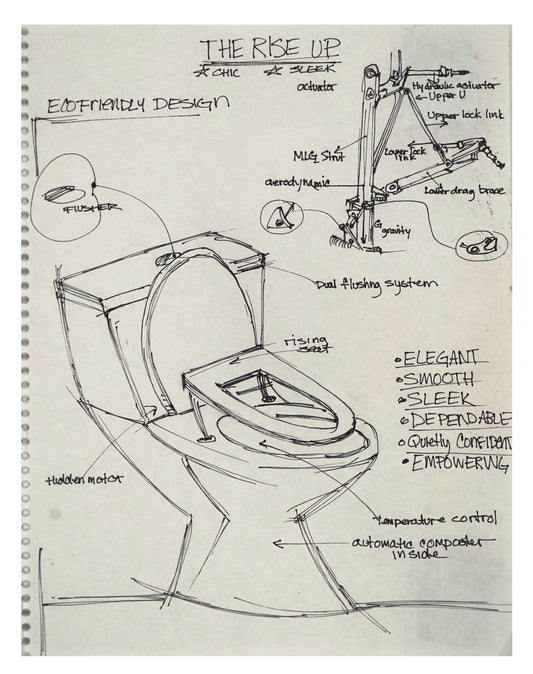 THE RISE UP
☆ CHIC ☆ SLEEK
actuator
ECOFRIENDLY DESIGN
Hydraulic actuator
← Upper U
Upper lock link
MLG Strut
Lower lock
link
aerodynamic
Lower drag brace
FLUSHER
G
gravity
Dual flushing system
rising
seat
• ELEGANT
• SMOOTH
• SLEEK
• DEPENDABLE
• Quietly CONFIDENT
• EMPOWERING
Hidden motor
temperature control
automatic composter
inside